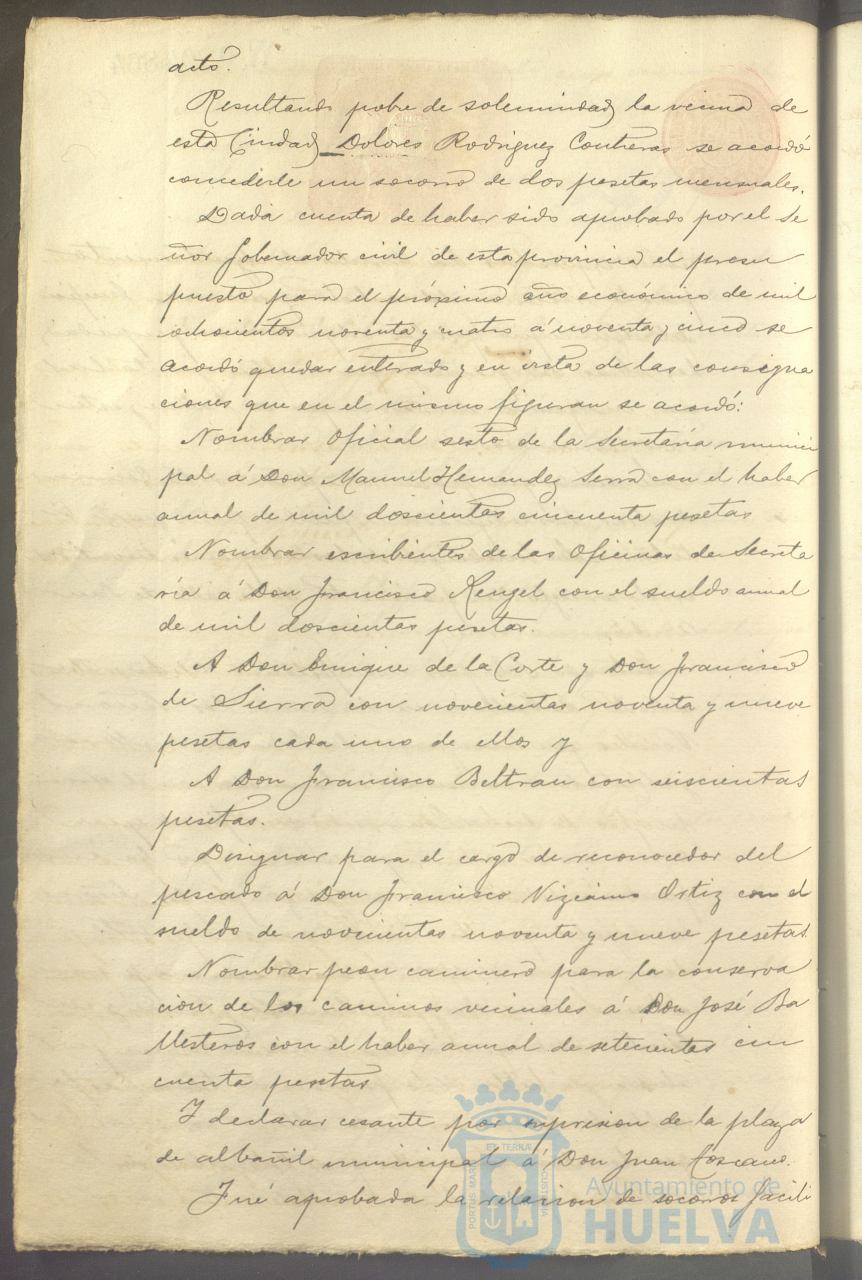 acto.
Resultando pobre de solemnidad la vecina de
esta Ciudad Dolores Rodriguez Contreras se acordó
concederle un socorro de dos pesetas mensuales.
Dada cuenta de haber sido aprobado por el Se
ñor Gobernador civil de esta provincia el presu
puesto para el próximo año económico de mil
ochocientos noventa y cuatro á noventa y cinco se
acordó quedar enterado y en vista de las consigna
ciones que en el mismo figuran se acordó:
Nombrar Oficial sesto de la Secretaría munici
pal á Don Manuel Hernandez Serra con el haber
anual de mil doscientas cincuenta pesetas
Nombrar escribientes de las Oficinas de Secreta
ría á Don Francisco Rengel con el sueldo anual
de mil doscientas pesetas.
A Don Enrique de la Corte y Don Francisco
de Sierra con novecientas noventa y nueve
pesetas cada uno de ellos y
A Don Francisco Beltran con seiscientas
pesetas.
Designar para el cargo de reconocedor del
pescado á Don Francisco Vizcaino Ortiz con el
sueldo de novecientas noventa y nueve pesetas.
Nombrar peon caminero para la conserva
cion de los caminos vecinales á Don José Ba
llesteros con el haber anual de setecientas cin
cuenta pesetas
Y declarar cesante por supresion de la plaza
de albañil municipal á Don Juan Toscano.
Fué aprobada la relacion de socorros facili
PORTUS MARIS ET TERRAE CUSTODIA
Ayuntamiento de
HUELVA